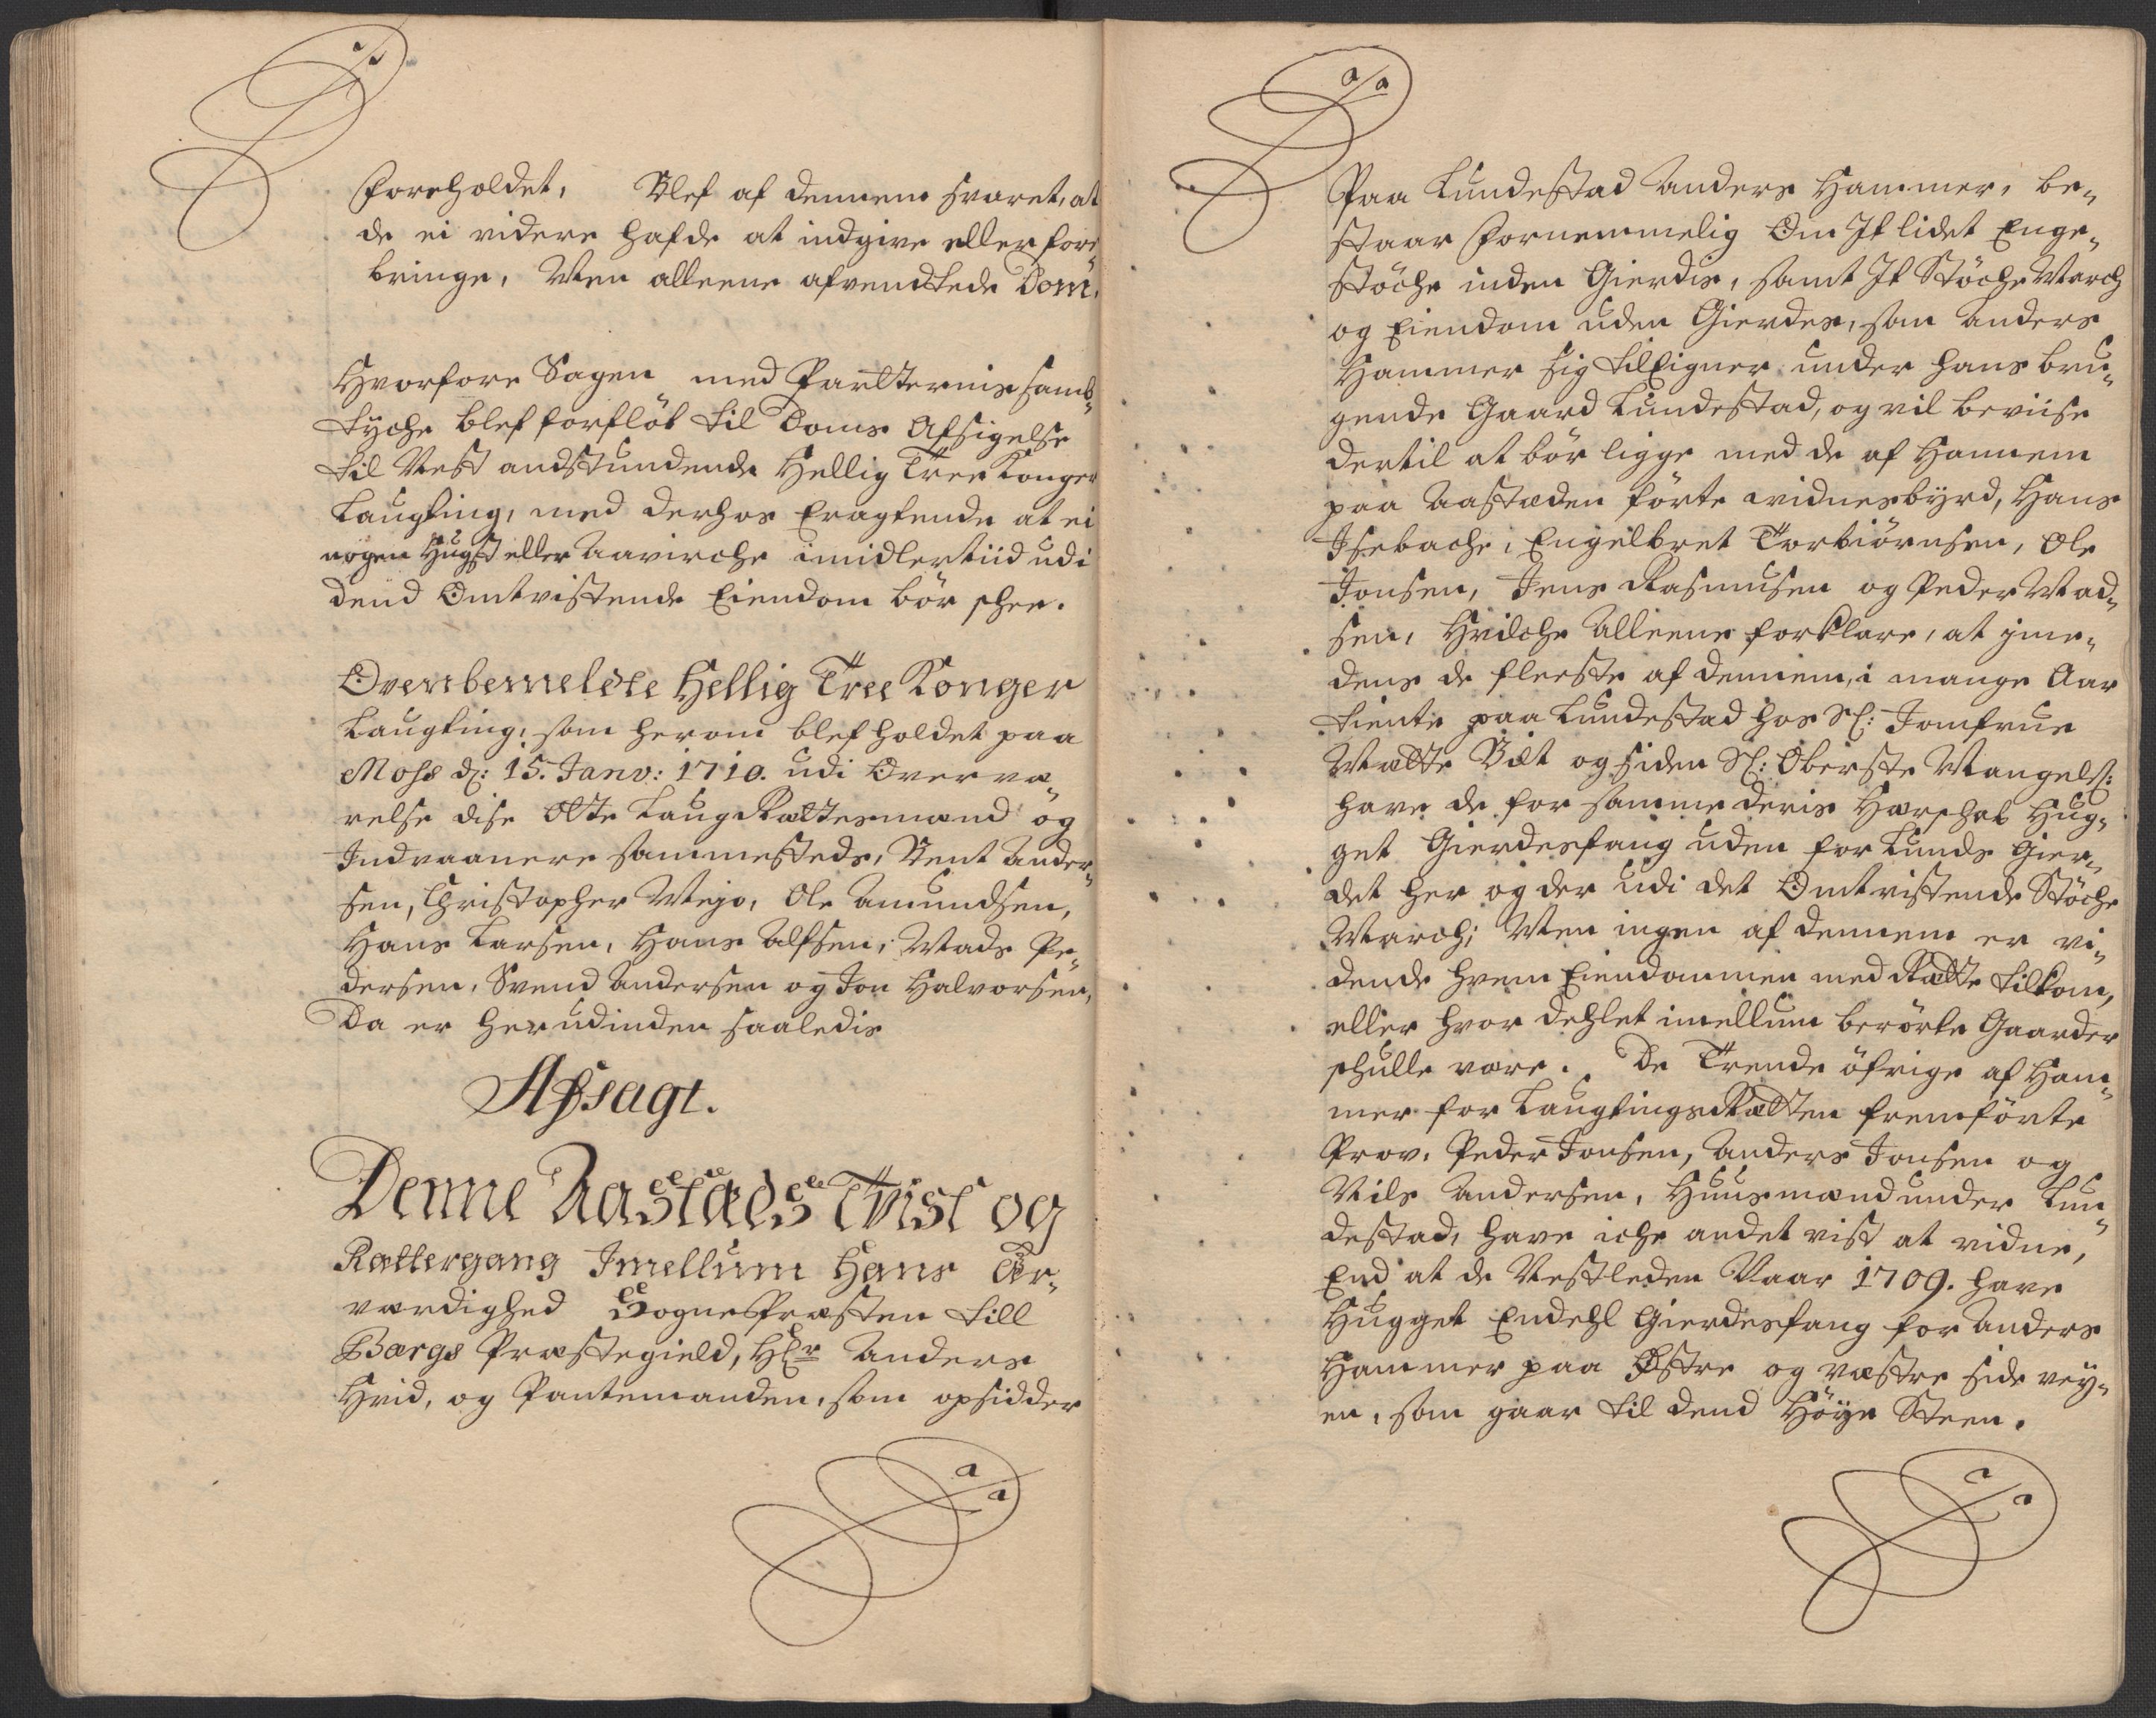 foreholdet, Blef af dennem svaret, at
de ei videre hafde at indgive eller fore„
bringe, Men alleene afventede Dom.
Hvorfore Sagen med Parternis samb„
tyche blef forfløt til Doms Afsigelse
til Nest anstundende Hellig Tree Konger
Laugting, med derhos Eragtende at ei
nogen Hugst eller Aavirche imidlertiid udi
dend Omtvistende Eiendom bör schee.
Ovenbemeldte Hellig Tree Konger
Laugting, som herom blef holdet paa
Moss d: 15. Janv: 1710. udi Overvæ„
relse dise Otte LaugRættesmænd og
Indvaanere sammesteds, Bent Ander„
sen, Christopher Mejo, Ole Amundsen,
Hans Larsen, Hans Alfsen, Mads Pe„
dersen, Svend Andersen og Jon Halvorsen,
Da er herudinden saaledis
Afsagt.
Denne Aastæds Tvist og
Rættergang Imellum Hans Ær„
værdighed SognePræsten till
Bergs Præstegield, Hr Anders
Hvid, og Pantemanden, som opsidder
Paa Lundestad Anders Hammer, be„
staar fornemmelig Om It lidet Enge„
støche inden Gierdis, samt It Støche March
og Eiendom uden Gierdes, som Anders
Hammer sig tilEigner under hans bru„
gende Gaard Lundestad, og vil beviise
dertil at bör ligge med de af Hannem
paa Aastæden förte vidnesbyrd, Hans
Isebache, Engelbret Torbiörnsen, Ole
Jonsen, Jens Rasmusen og Peder Mad„
sen, Hvilche Alleene forklare, at ime„
dens de fleeste af dennem, i mange Aar
tiente paa Lundestad hos Sl: Jomfrue
Mætte Bilt og siden Sl: Oberste Mangels:
have de for samme deris Herschab Hug„
get Gierdesfang uden for Lunds Gier„
det her og der udi det Omtvistende Støche
March; Men ingen af dennem er vi„
dende hvem Eiendommen med Rætte tilkom,
eller hvor dehlet imellum berörte Gaarder
schulle være. De Trende öfrige af Ham„
mer for LaugtingsRætten fremförte
Prov, Peder Jonsen, Anders Jonsen og
Nils Andersen, Huusmænd under Lun„
destad, have iche andet vist at vidne,
End at de Nestleden Vaar 1709. have
Hugget Endehl Gierdesfang for Anders
Hammer paa Østre og vestre side vey„
en, som gaar til dend Höye Steen.